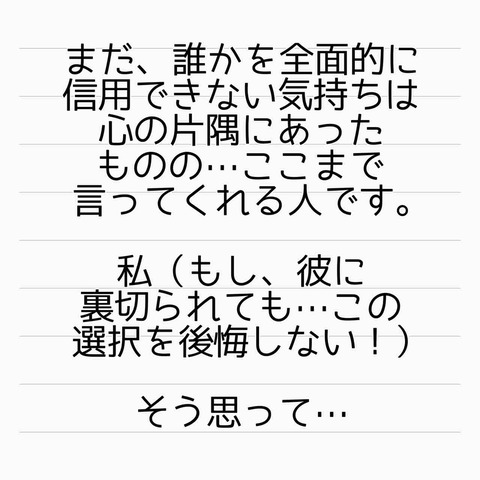 まだ、誰かを全面的に
信用できない気持ちは
心の片隅にあった
ものの…ここまで
言ってくれる人です。
私（もし、彼に
裏切られても…この
選択を後悔しない！）
そう思って…